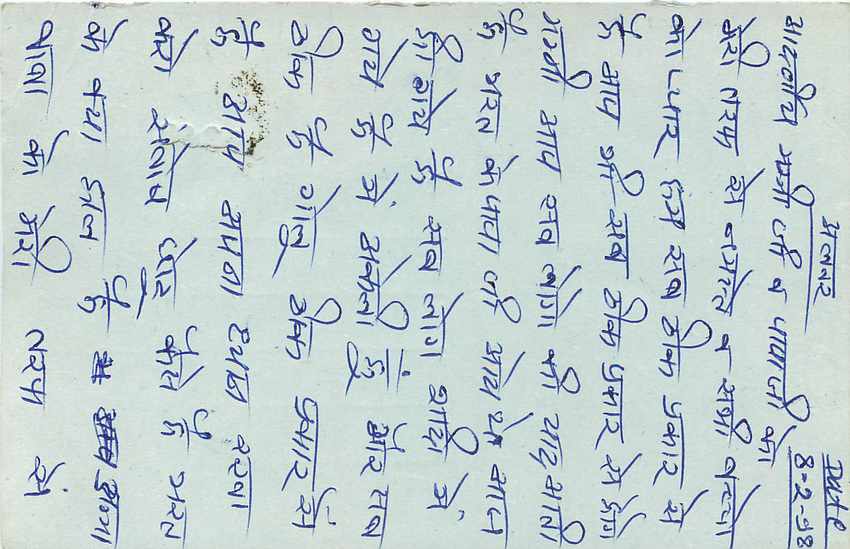 Date
8-2-98
अलवर
आदरणीय मम्मी जी व पापाजी को
मेरी तरफ से नमस्ते व सभी बच्चो
को प्यार हम सब ठीक प्रकार से
है आप भी सब ठीक प्रकार से होंगे
मम्मी आप सब लोगो की याद आती
है भरत के पापा जी आये थे आज
ही गये है सब लोग शादी में
गये है मैं अकेली हूं और सब
ठीक है गोलू ठीक प्रकार से
है आप अपना ध्यान रखना
बेटा कैसे है भरत
के क्या हाल है
पापा को मेरी तरफ से